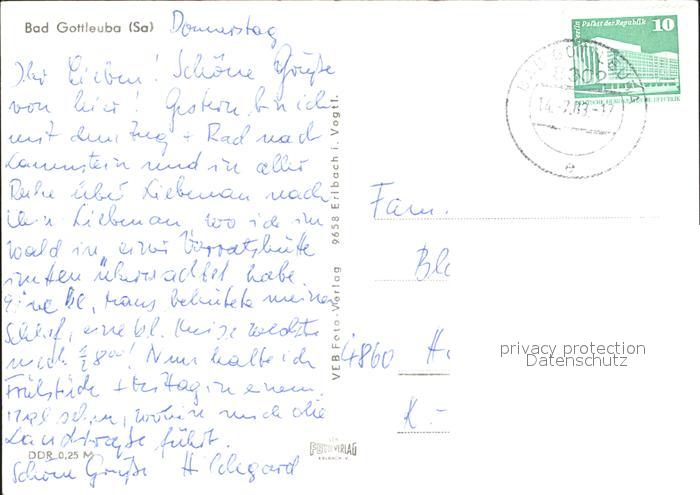 Bad Gottleuba (Sa) Donnerstag
Ihr Lieben! Schöne Grüße
von hier! Gestern bin ich
mit dem Zug + Rad nach
und in aller
Ruhe über Liebenau nach
Liebenau, wo ich im
Wald in einer Vorratshütte
übernachtet habe.
behütete meinen
Schlaf, eine kl. Meise weckte
mich 8°°! Nun halte ich
Frühstück + in einem.
Mal sehn, wohin mich die
Landstraße führt.
Schöne Grüße Hildegard
DDR 0,25 M
VEB Foto-Verlag 9658 Erlbach i. Vogtl.
FOTO VERLAG
ERLBACH V.
Berlin Palast der Republik 10
DEUTSCHE DEMOKRATISCHE REPUBLIK
BAD GOTTLEUBA
8302
14.-7.83-17
e
Fam.
Bl
4860 H
K.-
privacy protection
Datenschutz